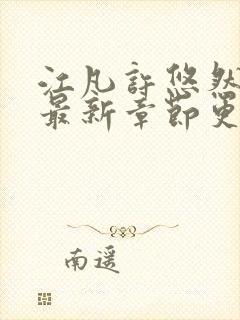 江凡許悠然
最新章節更
南遥